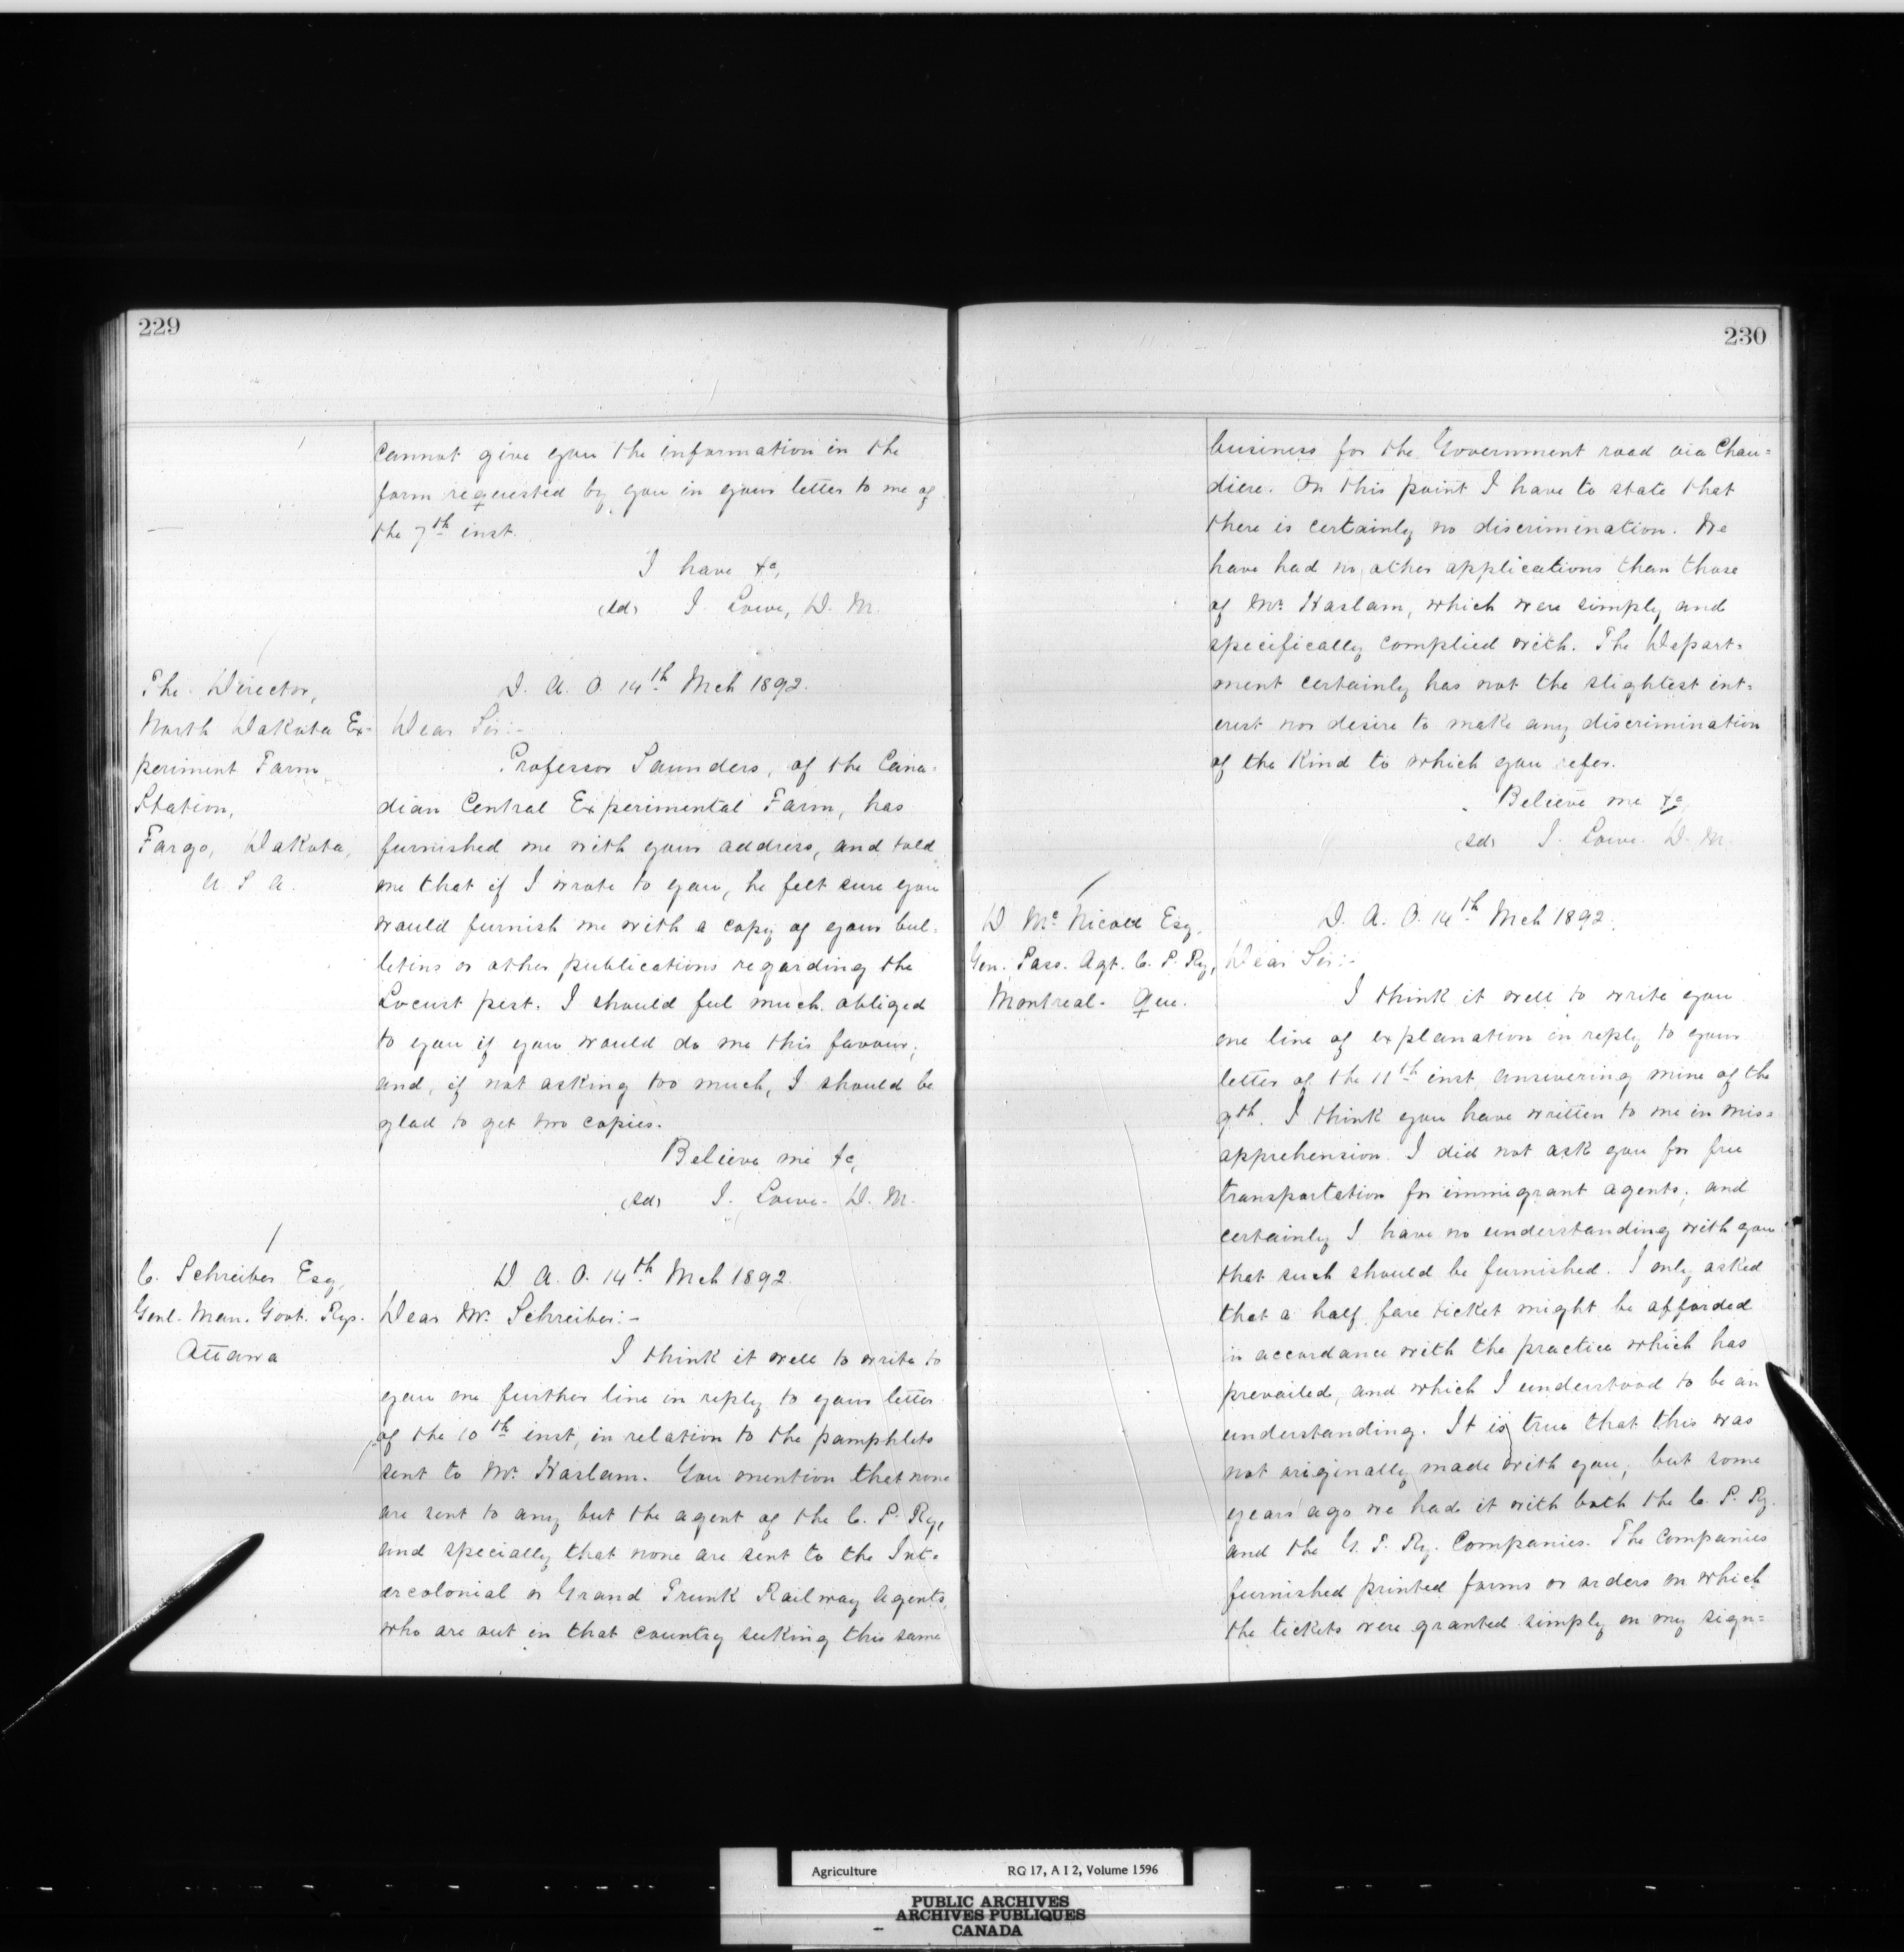 229
cannot give you the information in the
form requested by you in your letter to me of
the 7th inst.
I have &c,
(sd) J. Lowe, D. M.
The Director,
North Dakota Ex-
periment Farm
Station,
Fargo, Dakota,
U. S. A.
D. A. O. 14th Mch 1892.
Dear Sir:-
Professor Saunders, of the Cana-
dian Central Experimental Farm, has
furnished me with your address, and told
me that if I wrote to you, he felt sure you
would furnish me with a copy of your bul-
letins or other publications regarding the
Locust pest. I should feel much obliged
to you if you would do me this favour;
and, if not asking too much, I should be
glad to get two copies.
Believe me &c,
(sd) J. Lowe. D. M.
C. Schreiber Esq,
Genl. Man. Govt. Rys.
Ottawa
D. A. O. 14th Mch 1892.
Dear Mr. Schreiber:-
I think it well to write to
you one further line in reply to your letter
of the 10th inst, in relation to the pamphlets
sent to Mr. Haslam. You mention that none
are sent to any but the agent of the C. P. Ry,
and specially that none are sent to the Int-
ercolonial or Grand Trunk Railway Agents,
who are out in that country seeking this same
230
business for the Government road via Chau=
diere. On this point I have to state that
there is certainly no discrimination. We
have had no other applications than those
of Mr. Haslam, which were simply and
specifically complied with. The Depart-
ment certainly has not the slightest int-
erest nor desire to make any discrimination
of the kind to which you refer.
Believe me &c
(sd) J. Lowe. D. M.
D. McNicoll Esq.
Gen. Pass. Agt. C. P. Ry,
Montreal. Que.
D. A. O. 14th Mch 1892.
Dear Sir:-
I think it well to write you
one line of explanation in reply to your
letter of the 11th inst, answering mine of the
9th. I think you have written to me in mis=
apprehension. I did not ask you for free
transportation for immigrant agents; and
certainly I have no understanding with you
that such should be furnished. I only asked
that a half fare ticket might be afforded
in accordance with the practice which has
prevailed, and which I understood to be an
understanding. It is true that this was
not originally made with you; but some
years ago we had it with both the C. P. Ry.
and the G. T. Ry. Companies. The Companies
furnished printed forms or orders on which
the tickets were granted simply on my sign=
Agriculture RG 17, A I 2, Volume 1596
PUBLIC ARCHIVES
ARCHIVES PUBLIQUES
CANADA